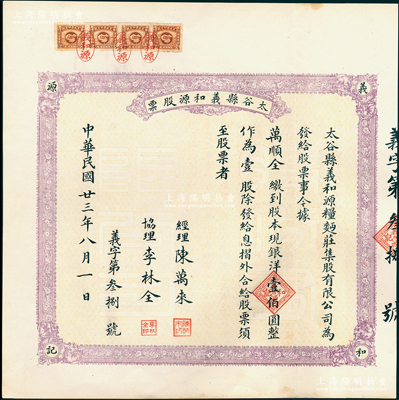 太谷縣義和源股票
義
和
源
記
太谷縣義和源糧麵莊集股有限公司為
發給股票事今據
萬順全 繳到股本現銀洋壹佰圓整
作為壹 股除發給息摺外合給股票須
至股票者
經理 陳萬來
協理 李林全
義字第叁捌號
中華民國廿三年八月一日
義字第叁捌號
義和源
義和源
義和源